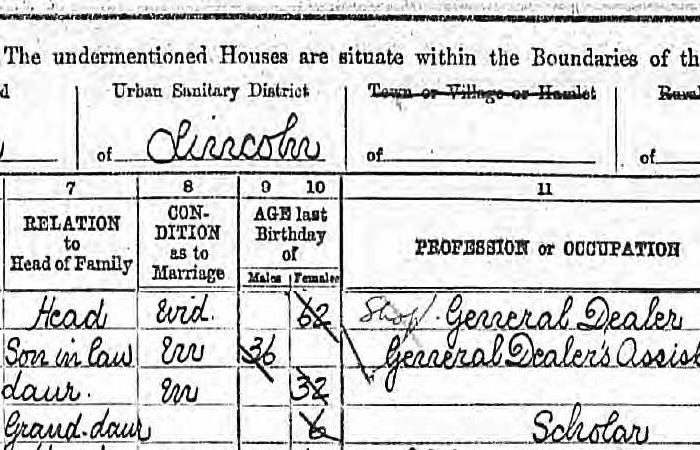 The undermentioned Houses are situate within the Boundaries of th
d Urban Sanitary District Town or Village or Hamlet Rural
of Lincoln of of
7 8 9 10 11
RELATION to Head of Family
CON-DITION as to Marriage
AGE last Birthday of
Males Females
PROFESSION or OCCUPATION
Head Wid. 62 Shop/. General Dealer
Son in law 36 General Dealer's Assis
daur. m 32
Grand-daur 6 Scholar